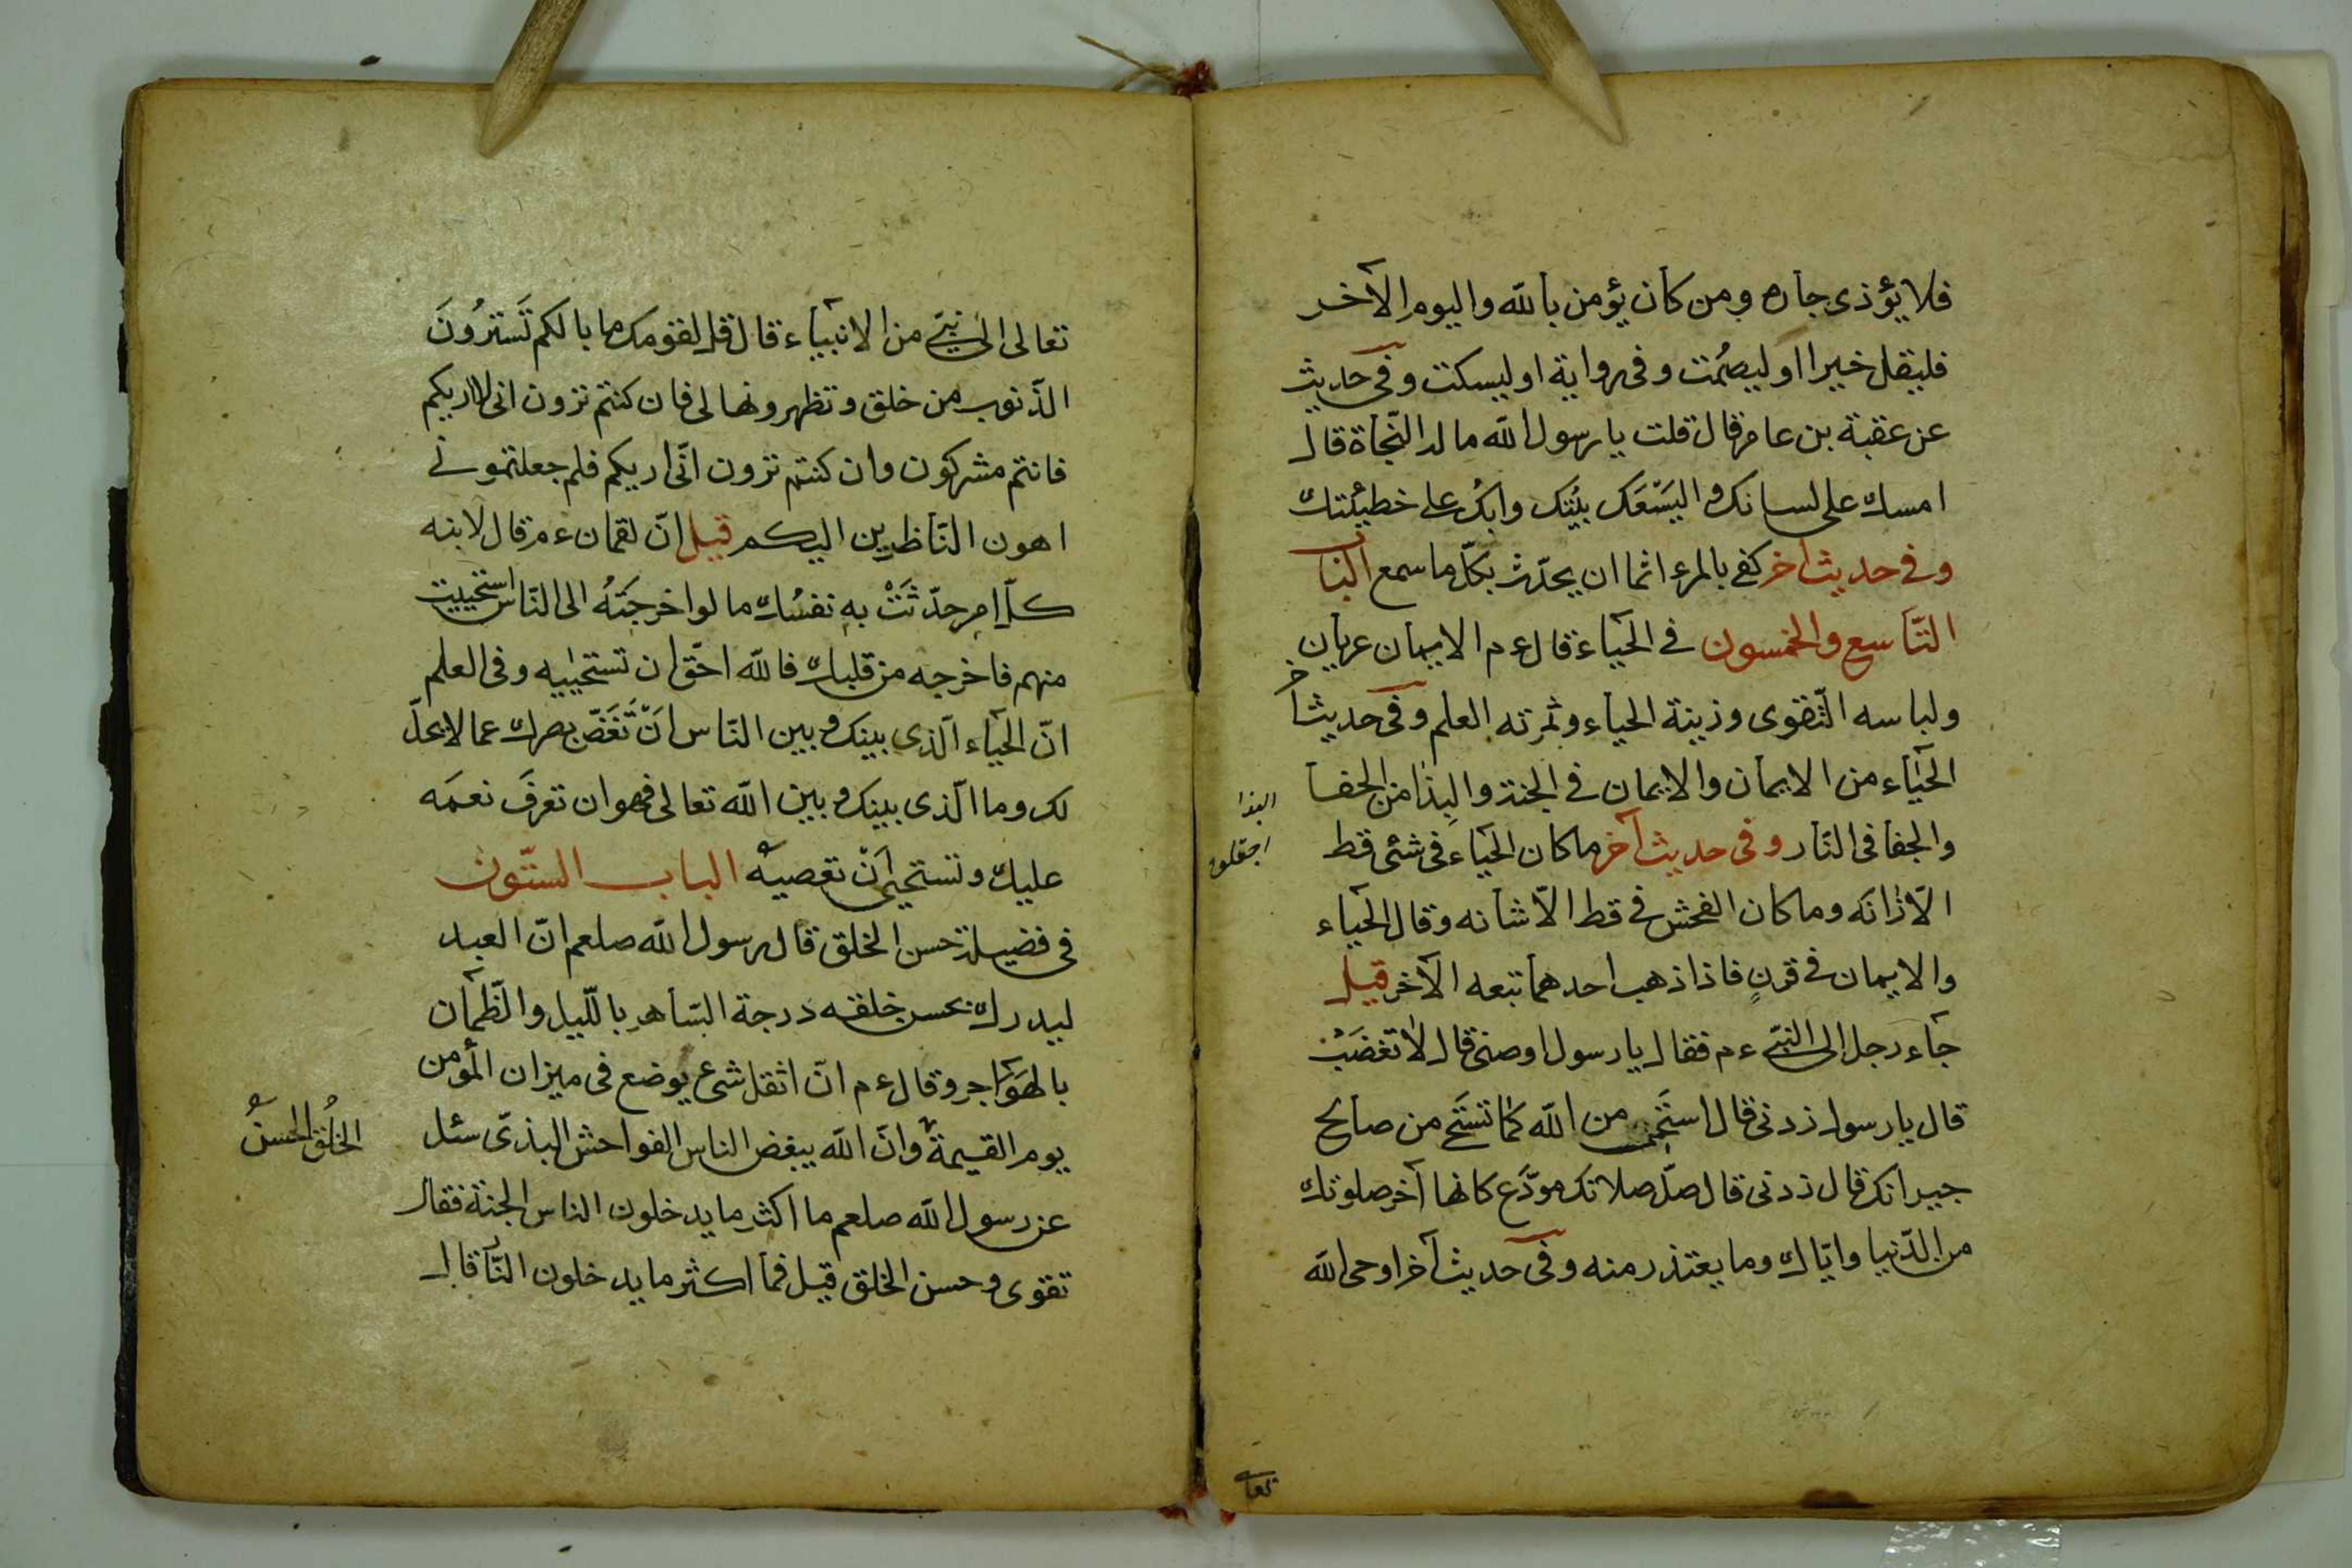 فلا يؤذى جاره ومن كان يؤمن بالله واليوم الآخر
فليقل خيرا او ليصمُت وفى رواية او ليسكت وفى حديث
عن عقبة بن عامر قال قلت يا رسول الله ما لدا النّجاة قال
امسك على لسانك واليَسْعَك بيْتك وابك على خطيئتك
وفى حديث آخر كفى بالمرء اثما ان يحدّث بكلّ ما سمع الباب
التّاسع والخمسون فى الحيآء قال ءم الايمان عريان
ولباسه التّقوى وزينة الحياء وثمرته العلم وفى حديث آخر
الحيآء من الايمان والايمان فى الجنة والبِذا من الجفا
والجفا فى النّار وفى حديث آخر ما كان الحيآء فى شئى قط
الّا زانَه وما كان الفحش فى قط الّا شانه وقال الحيآء
والايمان فى قرنٍ فاذا ذهب احدهما تبعه الآخر قيل
جآء رجل الى النبىّ ءم فقال يا رسول اوصنى قال لا تغضَبْ
قال يا رسول زدنى قال استَحى من الله كما تستَحى من صالح
جيرانك قال زدنى قال صلّ صلاتك مودّع كانها آخر صلوتك
من الدّنيا وايّاك وما يعتذر منه وفى حديث آخر اوحى الله
البذا
تعا
تعالى الى نبىّ من الانبيآء قال قل لقومك ما بالكم تَستترُونَ
الذّنوب من خلقى وتظهرونها لى فان كنتم ترون انى لا اريكم
فانتم مشركون وان كنتم ترون انّى اريكم فلم جعلتمونى
اهون النّاظرين اليكم قيل انّ لقمان ءم قال لابنه
كلّ امرٍ حدّثَتْ بهِ نفسُك ما لو اخرجتَهُ الى النّاس استحييت
منهم فاخرجه من قلبك فالله احّق ان تستحييه وفى العلم
انّ الحيآء الّذى بينك وبين النّاس انْ تَغَضّ بصرك عما لا يحلّ
لك وما الّذى بينك وبين الله تعالى فهو ان تعرفَ نعمَه
عليك وتستحيى اَنْ تعصيهُ الباب السّتّون
فى فضيلة حسن الخلق قال رسول الله صلعم انّ العبد
ليدرك بحسن خلقه درجة السّاهرِ باللّيل والظّمآن
بالهَوَاجر وقال ءم انّ اثقل شىء يوضع فى ميزان المؤمن
يوم القيمة وانّ الله يبغض الناس الفواحش البذىّ سئل
عن رسول الله صلعم ما اكثر ما يدخلون الناس الجنة فقال
تقوى وحسن الخلق قيل فما اكثر ما يدخلون النّار قال
الخُلُق الحسنُ